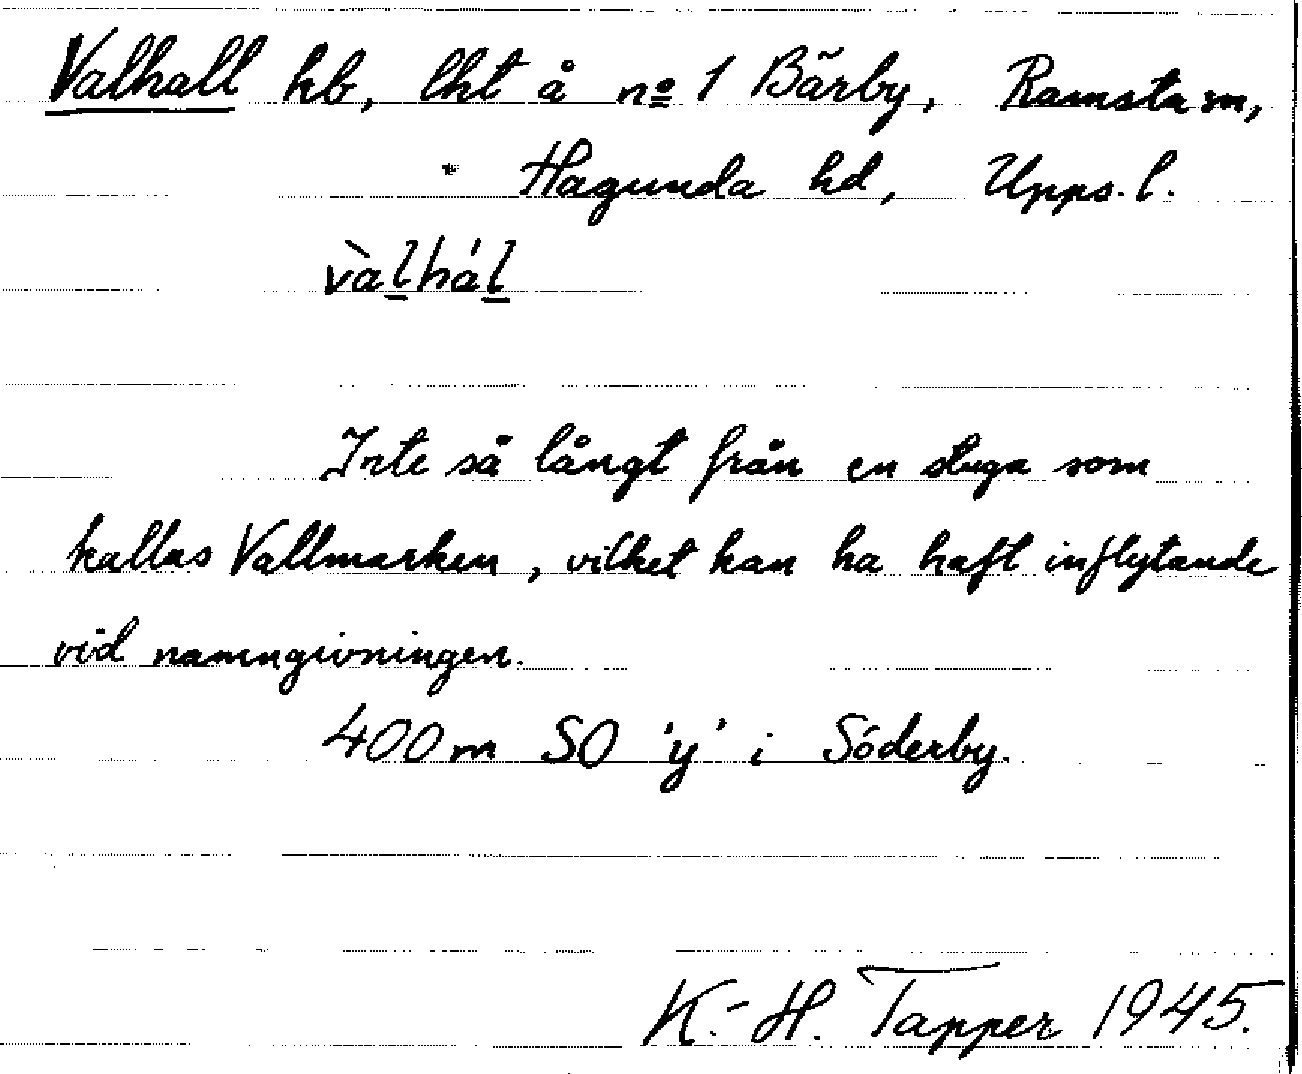 Valhall hb, lht å nº 1 Bärby, Ramsta sn,
Hagunda hd, Upps. l.
vàlhál
Inte så långt från en stuga som
kallas Vallmarken, vilket kan ha haft inflytande
vid namngivningen.
400 m SO 'y' i Söderby.
K.-H. Tapper 1945.